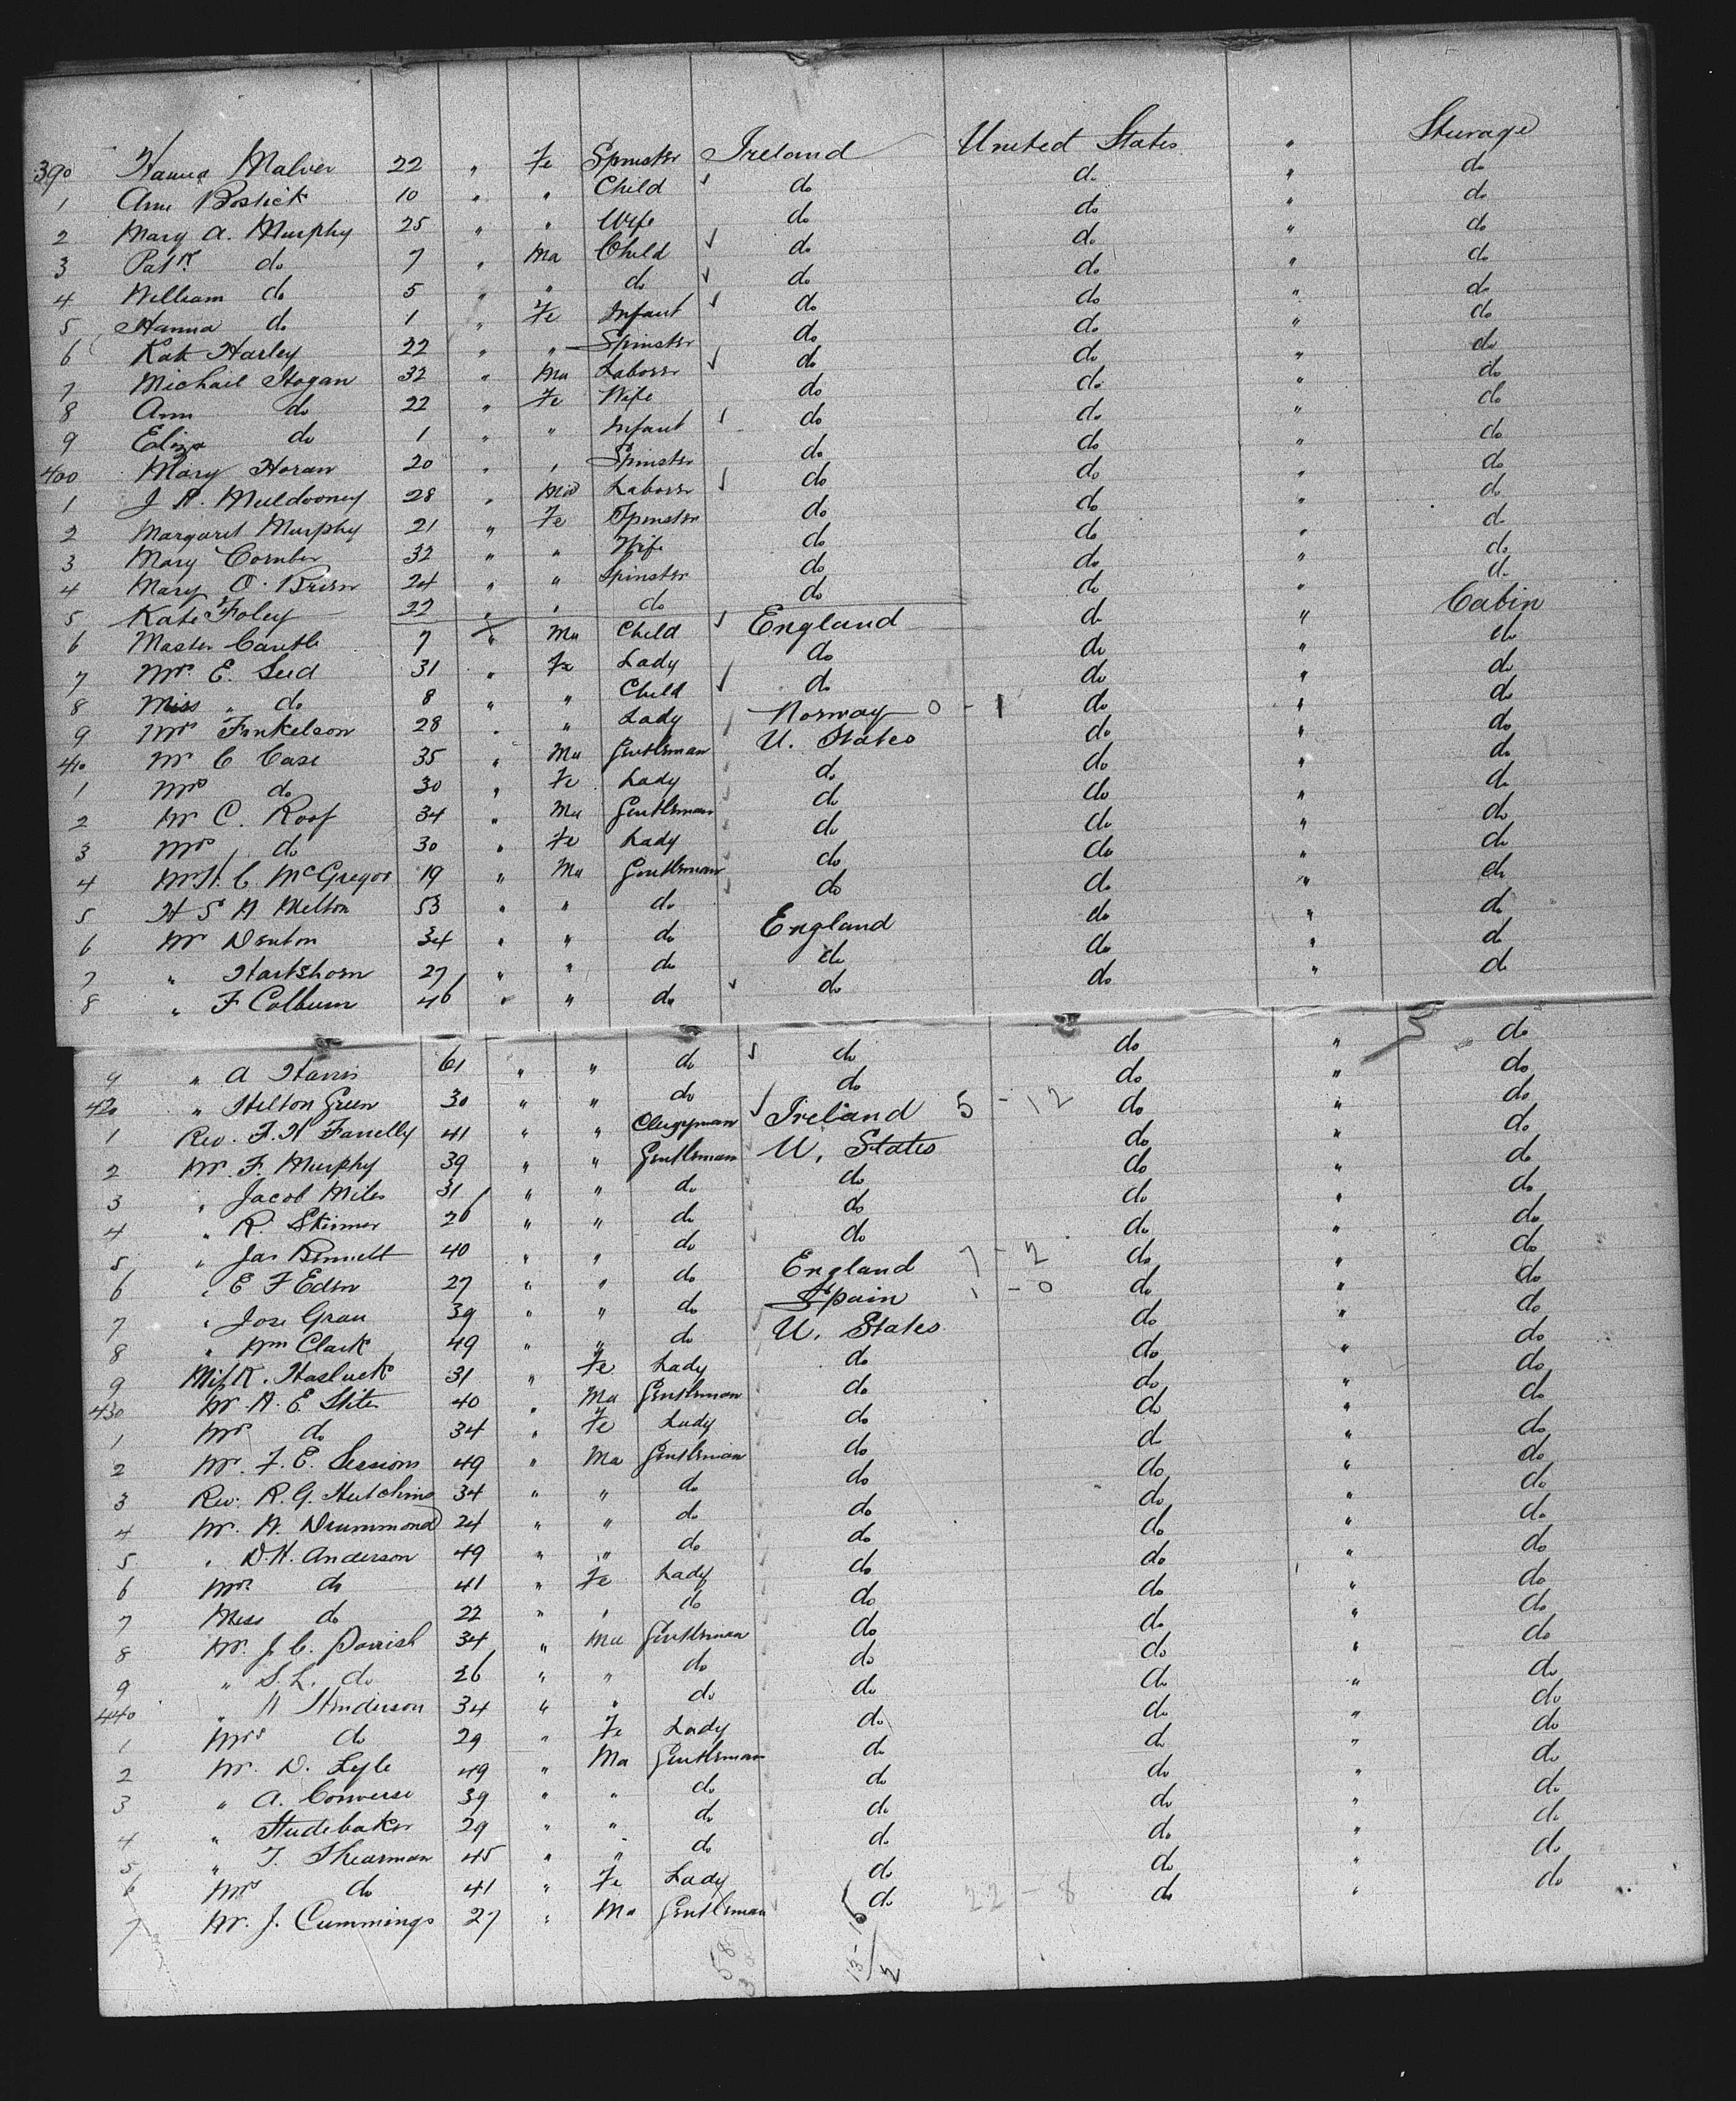 390 Hanna Malver 22 " Fe Spinster Ireland United States " Sturage
1 Ann Bostick 10 " " Child do do " do
2 Mary A. Murphy 25 " " Wife do do " do
3 Patk. do 7 " Ma Child do do " do
4 William do 5 " " do do do " do
5 Hanna do 1 " Fe Infant do do " do
6 Kate Harley 22 " " Spinster do do " do
7 Michail Hogan 32 " Ma Laborer do do " do
8 Ann do 22 " Fe Wife do do " do
9 Eliza do 1 " " Infant do do " do
400 Mary Horan 20 " " Spinster do do " do
1 J. A. Muldooney 28 " Ma Laborer do do " do
2 Margaret Murphy 21 " Fe Spinster do do " do
3 Mary 32 " " Wife do do " do
4 Mary O. Brien 24 " " Spinster do do " do
5 Kate Foley 22 " " do do do " do
6 Master Cantle 7 " Ma Child England do " Cabin
7 Mrs. E. Seed 31 " Fe Lady do do " do
8 Miss " do 8 " " Child do do " do
9 Mrs Finkelson 28 " " Lady Norway 0 - 1 do " do
410 Mr C Case 35 " Ma Gentleman U. States do " do
1 Mrs do 30 " Fe Lady do do " do
2 Mr C. Roof 34 " Ma Gentleman do do " do
3 Mrs do 30 " Fe Lady do do " do
4 Mr H. C. McGregor 19 " Ma Gentleman do do " do
5 H S N Melton 53 " " do do do " do
6 Mr Denton 34 " " do England do " do
7 " Hartshorn 27 " " do do do " do
8 " F Colburn 46 " " do do do " do
9 " A Harris 61 " " do do do " do
420 " Hilton Green 30 " " do do do " do
1 Rev. F. H Farrelly 41 " " Clergyman Ireland 5 - 12 do " do
2 Mr. F. Murphy 39 " " Gentleman U. States do " do
3 " Jacob Miles 31 " " do do do " do
4 " R. Skinner 26 " " do do do " do
5 " Jas Bennett 40 " " do do do " do
6 " E F Eden 27 " " do England 7 - 2 do " do
7 " Jose Grau 39 " " do Spain 1 - 0 do " do
8 " Wm Clark 49 " " do U. States do " do
9 Miss K. Hasluck 31 " Fe Lady do do " do
430 Mr. A. E. Stites 40 " Ma Gentleman do do " do
1 Mrs do 34 " Fe Lady do do " do
2 Mr. F. E. Sessions 49 " Ma Gentleman do do " do
3 Rev. R. G. Hutchins 34 " " do do do " do
4 Mr. A. Drummond 24 " " do do do " do
5 " D. H. Anderson 49 " " do do do " do
6 Mrs do 41 " Fe Lady do do " do
7 Miss do 22 " " do do do " do
8 Mr. J. C. Parrish 34 " Ma Gentleman do do " do
9 " S. L. do 26 " " do do do " do
440 " A Henderson 34 " " do do do " do
1 Mrs do 29 " Fe Lady do do " do
2 Mr. D. Lyle 49 " Ma Gentleman do do " do
3 " A. Converse 39 " " do do do " do
4 " Studebaker 29 " " do do do " do
5 " T. Shearman 45 " " do do do " do
6 Mrs do 41 " Fe Lady do do " do
7 Mr. J. Cummings 27 " Ma Gentleman do 22 - 8 do " do
58
13 - 15